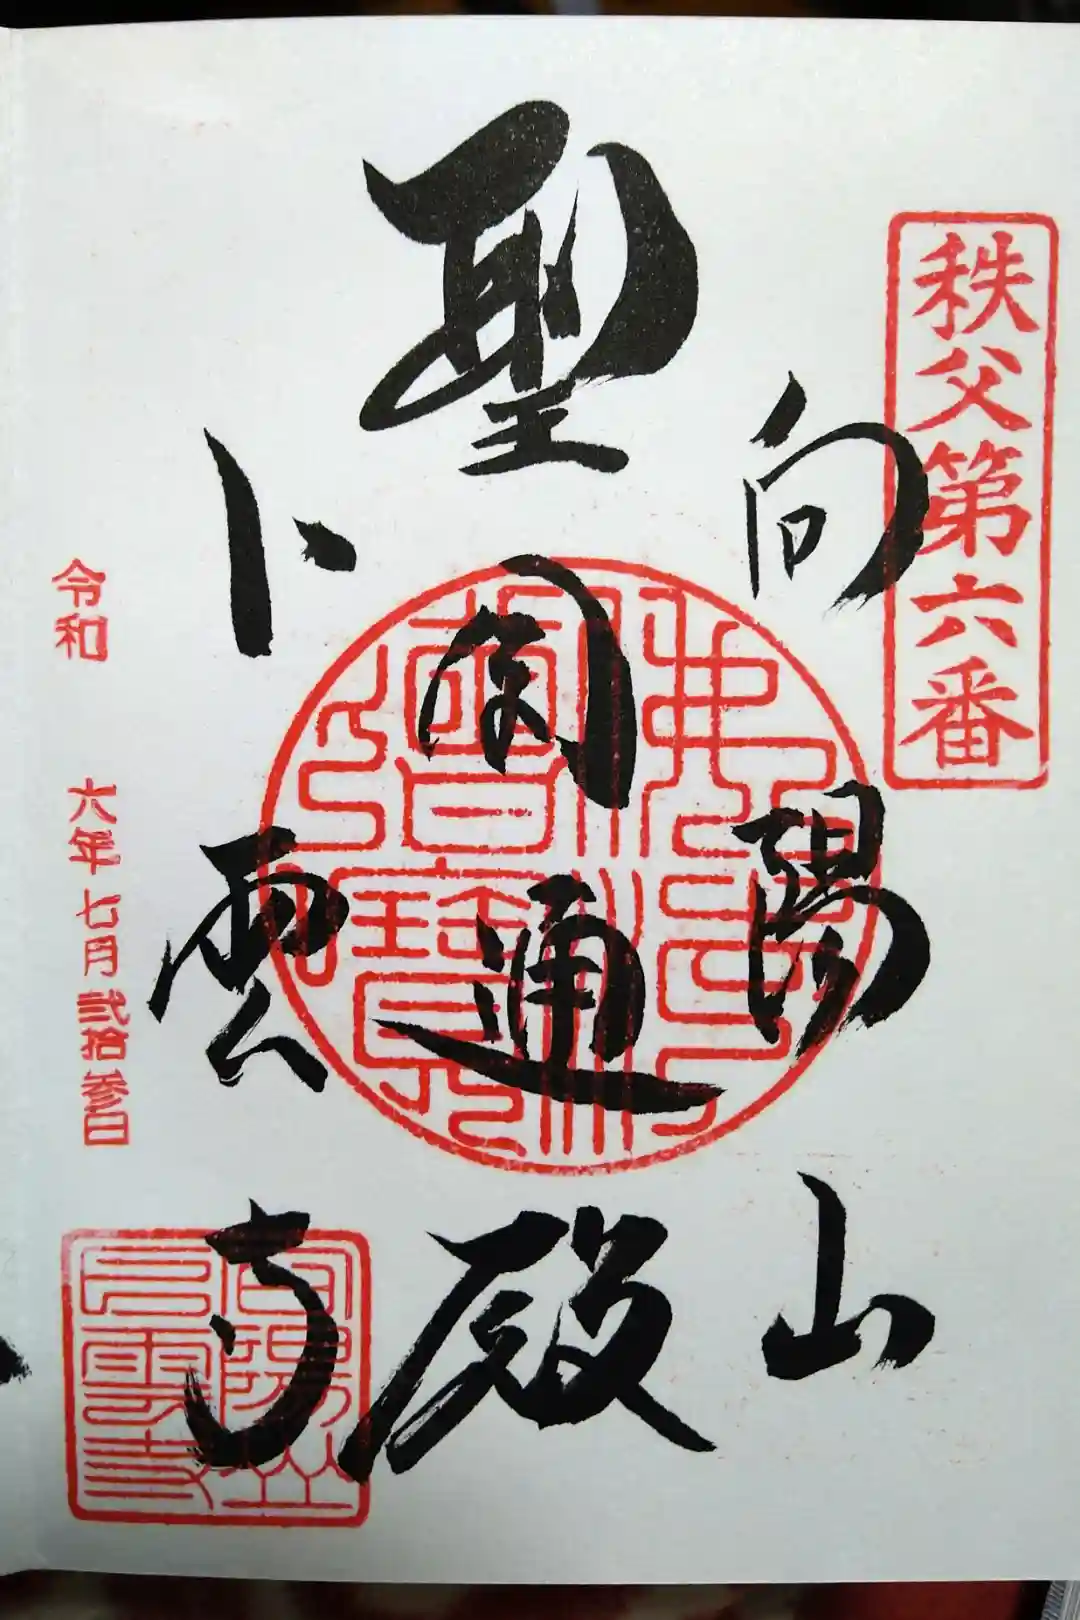 秩父第六番
向陽山
聖圓通殿
佛法僧寶
卜雲寺
向陽山
卜雲寺
令和六年七月弐拾参日